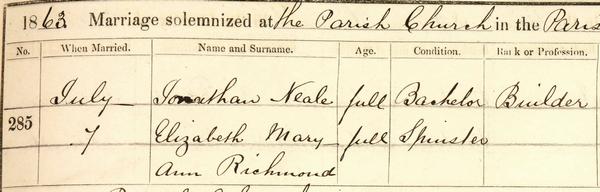 1863 Marriage solemnized at the Parish Church in the Paris
No. When Married. Name and Surname. Age. Condition. Rank or Profession.
July Jonathan Neale full Bachelor Builder
285 7 Elizabeth Mary full Spinster
Ann Richmond